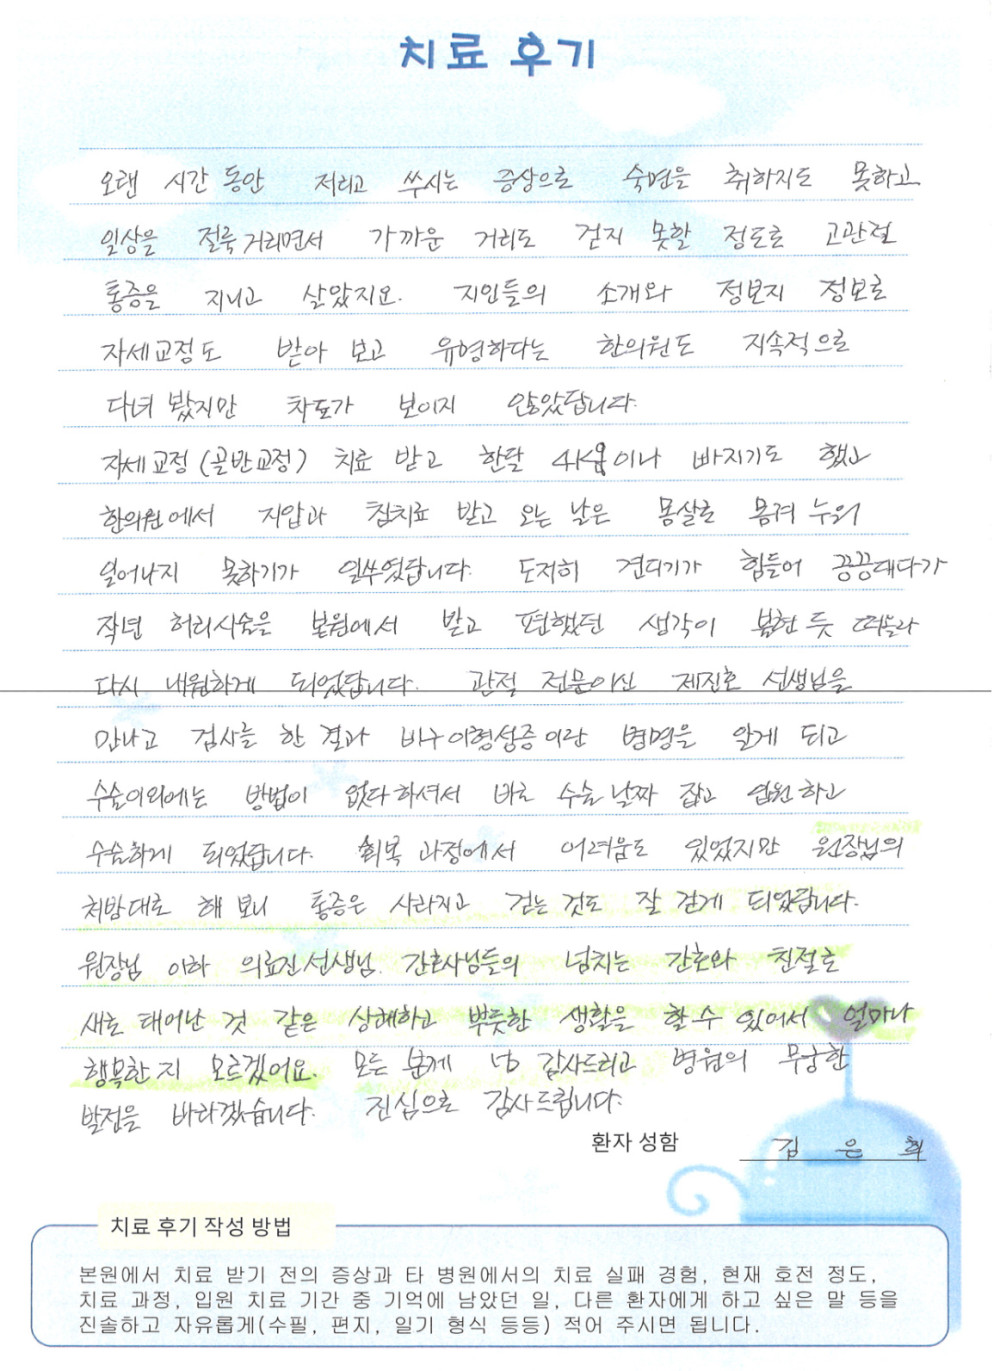 치료 후기
오랜 시간 동안 저리고 쑤시는 증상으로 숙면을 취하지도 못하고
일상을 절룩거리면서 가까운 거리도 걷지 못할 정도로 고관절
통증을 지니고 살았지요. 지인들의 소개와 정보지 정보로
자세교정도 받아 보고 유명하다는 한의원도 지속적으로
다녀 봤지만 차도가 보이지 않았답니다.
자세교정(골반교정) 치료 받고 한달 4kg이나 빠지기도 했고
한의원에서 지압과 침치료 받고 오는 날은 몸살로 몸져 누워
일어나지 못하기가 일쑤였답니다. 도저히 견디기가 힘들어 끙끙대다가
작년 허리시술을 본원에서 받고 편했던 생각이 불현듯 떠올라
다시 내원하게 되었답니다. 관절 전문이신 제진호 선생님을
만나고 검사를 한 결과 비구이형성증이란 병명을 알게 되고
수술이외에는 방법이 없다하셔서 바로 수술 날짜 잡고 입원하고
수술하게 되었답니다. 회복 과정에서 어려움도 있었지만 원장님의
처방대로 해 보니 통증은 사라지고 걷는 것도 잘 걷게 되었답니다.
원장님 이하 의료진선생님, 간호사님들의 넘치는 간호와 친절로
새로 태어난 것 같은 상쾌하고 뿌듯한 생활을 할 수 있어서 얼마나
행복한지 모르겠어요. 모든 분께 넘 감사드리고 병원의 무궁한
발전을 바라겠습니다. 진심으로 감사드립니다.
환자 성함 김 은 희
치료 후기 작성 방법
본원에서 치료 받기 전의 증상과 타 병원에서의 치료 실패 경험, 현재 호전 정도,
치료 과정, 입원 치료 기간 중 기억에 남았던 일, 다른 환자에게 하고 싶은 말 등을
진솔하고 자유롭게(수필, 편지, 일기 형식 등등) 적어 주시면 됩니다.